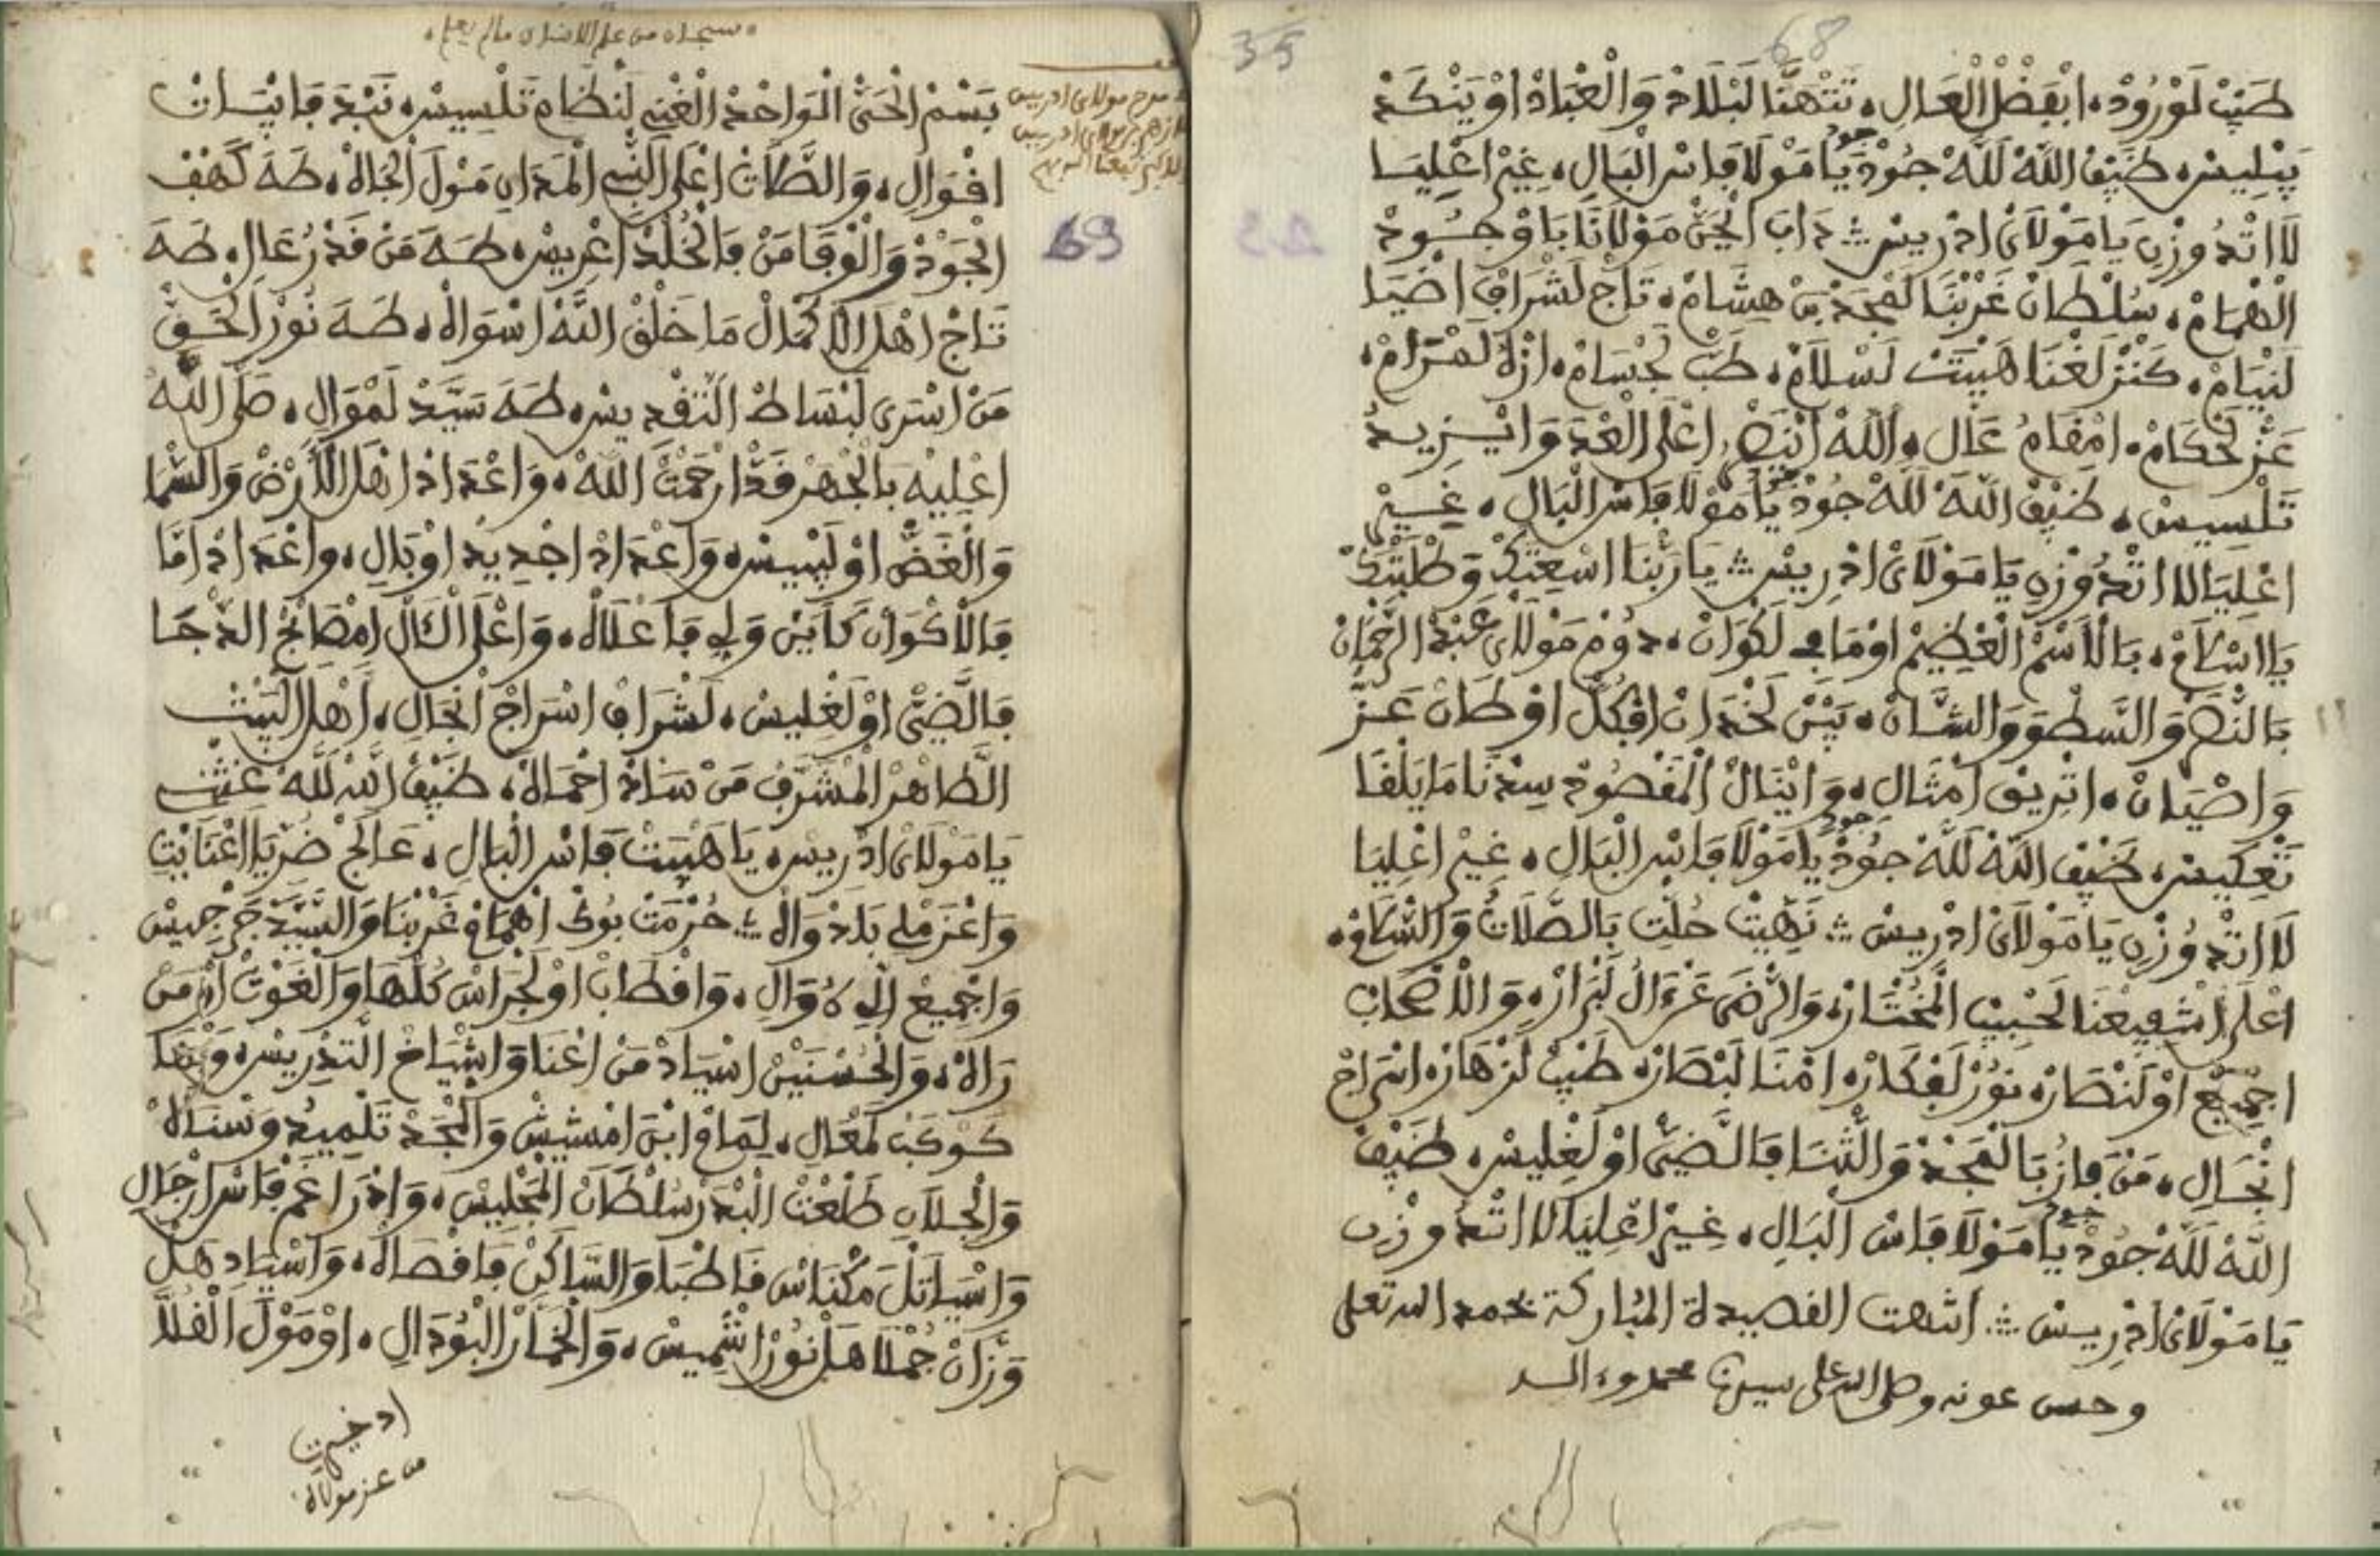 68
35
طَيَبْ لَوْرُودْ، ابْفَضْلْ الْعَالِ، تَتْهَنَّا لَبْلَادْ وَالْعْبَادْ اوْيَنْكَدْ
بَبْلِيسْ، ضَيْفْ اللَّهْ لَلَّهْ جُودْ يَا مَوْلَا فَاسْ الْبَالِ، غِيرْ اعْلِيَا
لَا اتْدُوزْنِ يَا مَوْلَايْ ادْرِيسْ ۞ دَابْ الْحَيْ مَوْلَانَا بَاوْجُودْ
الْهْمَامْ، سُلْطَانْ غَرْبْنَا لَمْجَدْ بَنْ هِشَامْ، تَاجْ لَشْرَافْ اضْيَا
لَنْيَامْ، كَنْزْ لَغْنَا هَيْبَتْ لَسْلَامْ، طَبْ لَجْسَامْ، ازْهَ لَهْرَامْ،
عَزْ لَحْكَامْ، امْقَامُ عَالِ، اللَّهْ انْصَرُ اعْلَى الْعْدَ وَايْزِيدُ
تَلْسِيسْ، ضَيْفْ اللَّهْ لَلَّهْ جُودْ يَا مَوْلَا فَاسْ الْبَالِ، غِيرْ
اعْلِيَا لَا اتْدُوزْنِ يَا مَوْلَايْ ادْرِيسْ ۞ يَا رَبْنَا اسْعِيتَكْ وَطْلَبْتَكْ
يَا السْلَامْ، بَالْاسْمْ الْعْظِيمْ اوْمَا فِي لَكْوَانْ، دُومْ مَوْلَايْ عَبْدْ الرَّحْمَانْ
بَالنَّصْرْ وَالسَّطْوَ وَالشَّانْ، بَيْنْ لَخْدَانْ افْكُلْ اوْطَانْ عَزْ
وَاصْيَانْ، اتْرِيقْ امْثَالِ، وَايْنَالْ الْمَقْصُودْ سِدْنَا مَا يَلْقَا
تَعْكِيسْ، ضَيْفْ اللَّهْ لَلَّهْ جُودْ يَا مَوْلَا فَاسْ الْبَالِ، غِيرْ اعْلِيَا
لَا اتْدُوزْنِ يَا مَوْلَايْ ادْرِيسْ ۞ نَهِّيتْ حُلْتِ بَالصَّلَاتُ وَالسَّلَامْ،
اعْلَى اشْفِيعْنَا لَحْبِيبْ الْمُخْتَارْ، وَالرَّضَى عَزْ ءَالُ لَبْرَارْ، وَالْاصْحَابْ
اجْمِيعْ اوْلَنْصَارْ، نُورْ لَفْكَارْ، امْنَا لَبْصَارْ، طَيَبْ لَزْهَارْ، اسْرَاجْ
انْجَالِ، مَنْ فَازْ بَالْمَجْدْ وَالثّْنَا فَالضَّيْ اوْلَغْلِيسْ، ضَيْفْ
اللَّهْ لَلَّهْ جُودْ يَا مَوْلَا فَاسْ الْبَالِ، غِيرْ اعْلِيَا لَا اتْدُوزْنِ
يَا مَوْلَايْ ادْرِيسْ ۞ انتهت القصيدة المباركة بحمد الله تعلى
وحسن عونه وصلى الله على سيدنا محمد وءاله
سبحان من علم الانسان ما لم يعلم
69
بَسْمْ الْحَيْ الْوَاحْدْ الْغْنِي لَنْظَامْ تَلْسِيسْ، نَبْدَ فَابْيَاتْ
افْوَالِ، وَالصَّلَاتْ اعْلَى النّْبِي الْمَدَانِ مَوْلَ الْجَالَهْ، طَهَ كَهْفْ
الْجُودْ وَالْوْفَا مَنْ فَالْخُلْدْ اعْرِيسْ، طَهَ مَنْ قَدْرُ عَالِ، طَهَ
تَاجْ اهْلْ الْاكْمَالْ مَا خَلْقْ اللَّهْ اسْوَالَهْ، طَهَ نُورْ الْحَقْ
مَنْ اسْرَى لَبْسَاطْ التّْقْدِيسْ، طَهَ سَيَّدْ لَمْوَالِ، صَلَّى اللَّهْ
اعْلِيهْ بَالْجْهَرْ قَدْ ارْحَمْتْ اللَّهْ، وَاعْدَادْ اهْلْ الْارْضْ وَالسّْمَا
وَالْغَضْ اوْلَيْبِيسْ، وَاعْدَادْ اجْدِيدْ اوْبَالِ، وَاعْدَادْ امَّا
فَالْاكْوَانْ كَايَنْ وَلِي فَاعْلَالَهْ، وَاعْلَى الْآلْ امْصَابْحْ الدّْجَا
فَالضَّيْ اوْلَغْلِيسْ، لَشْرَافْ اسْرَاجْ انْجَالِ، اهْلْ الْبَيْتْ
الطَّاهْرْ الْمْشَرَّفْ مَنْ سَادْ اجْمَالَهْ، ضَيْفْ اللَّهْ لَلَّهْ غَثْنِي
يَا مَوْلَايْ ادْرِيسْ، يَا هَيْبَتْ فَاسْ الْبَالِ، عَالَجْ ضُرْ يَا اعْنَايْتِ
وَاعْزَمْ لِي بَدْوَالَهْ ۞ حُرْمَتْ بُوكْ اهْمَامْ غَرْبْنَا وَالسَّيَّدْ جَرْجِيسْ
وَاجْمِيعْ اللِّي هُوَالِ، وَاقْطَابْ اوْلَجْرَاسْ كُلْهَا وَالْغَوْتْ امَنْ
رَالَهْ، وَالْحُسْنِيِّينْ اسْيَادْ مَنْ اعْنَا وَاشْيَاخْ التَّدْرِيسْ، وَنْهَا
كَوْكَبْ لَمْعَالِ، لِمَامْ ابْنْ امْشِيشْ وَالْمْجَدْ تَلْمِيدُ وَسْنَالَهْ
وَالْجِلَالِي طَلْعْتْ الْبْدَرْ سُلْطَانْ الْمَجْلِيسْ، وَادْرَاغَمْ فَاسْ ارْجَالِ
وَاسْيَاتَلْ مَكْنَاسْ فَاطْبَا وَالسَّاكَنْ فَافْصَالَهْ، وَاسْيَادْ هَلْ
وَزَّانْ جُمْلَا هَلْ نُورْ اشْمِيسْ، وَالْخَمَّارْ الْبُودَالِ، اوْمَوْلَ الْقُلَّا